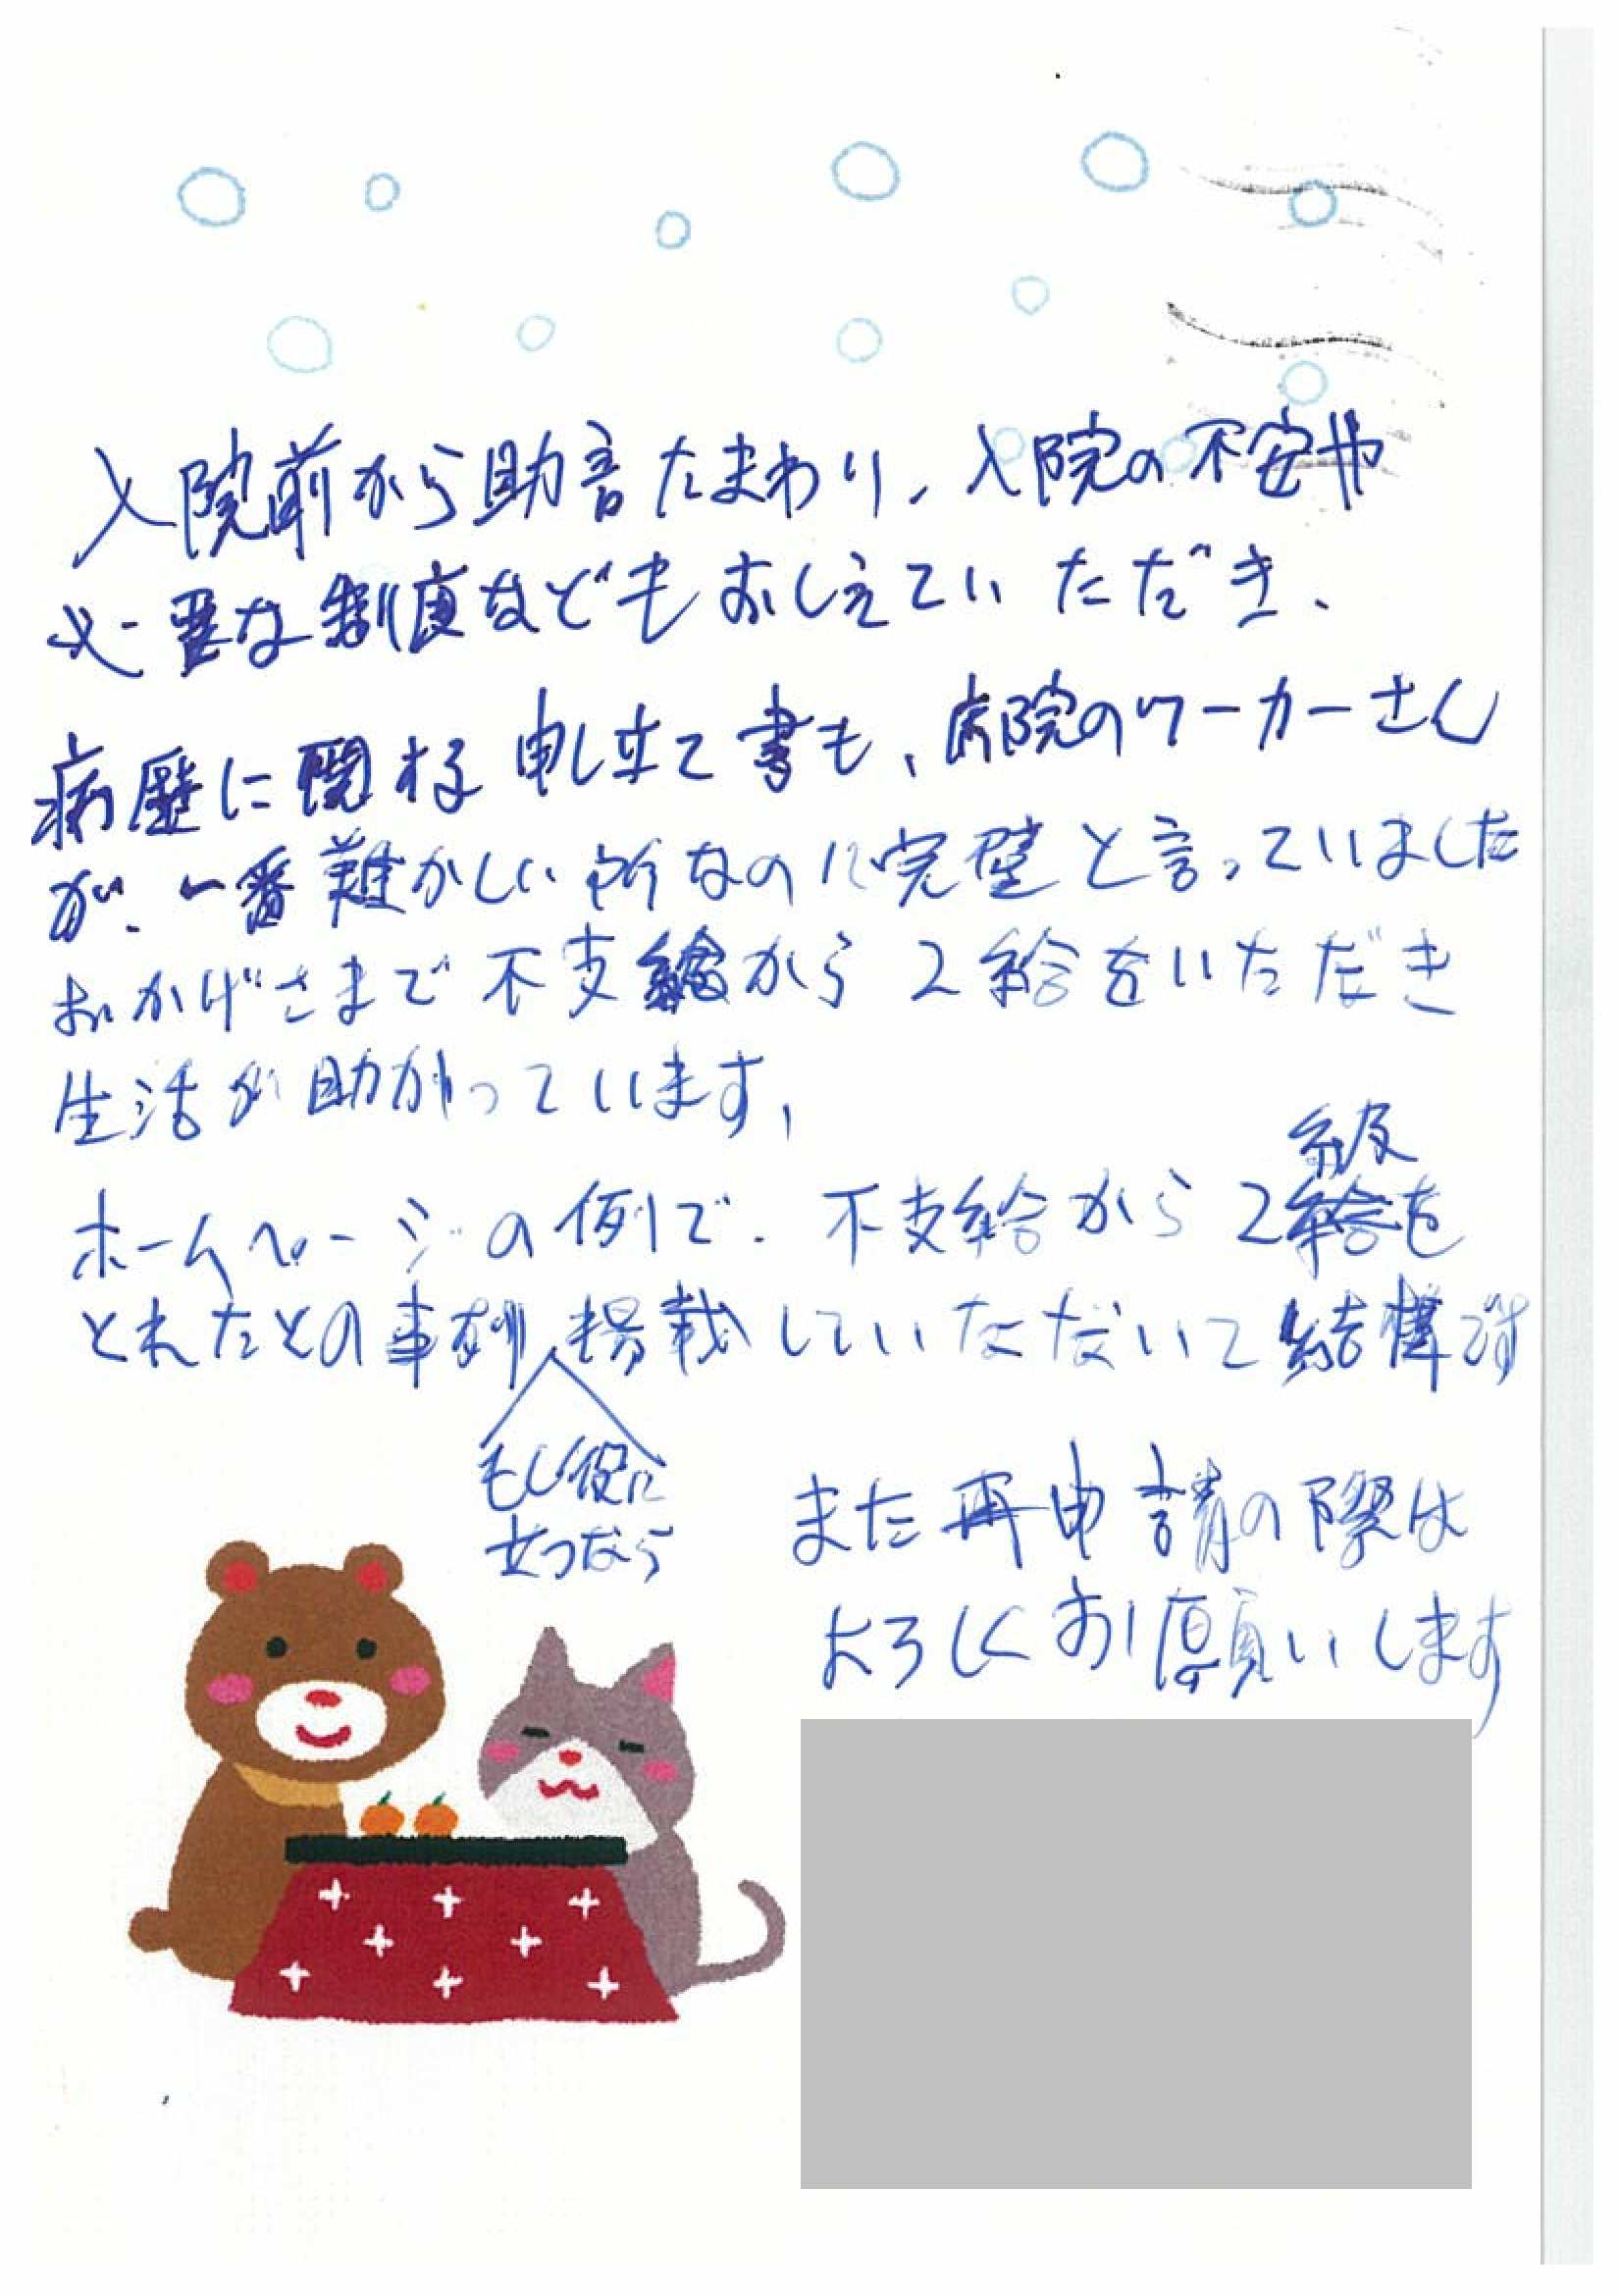 入院前から助言たまわり、入院の不安や
必要な制度などもおしえていただき、
病歴に関する申し立て書も、病院のワーカーさん
が、一番難かしい所なのに完璧と言っていました
おかげさまで不支給から2給をいただき
生活が助かっています、
ホームページの例で、不支給から2級を
とれたとの事例掲載していなだいて結構です
もし役に
立つなら
また再申請の際は
よろしくお願いします